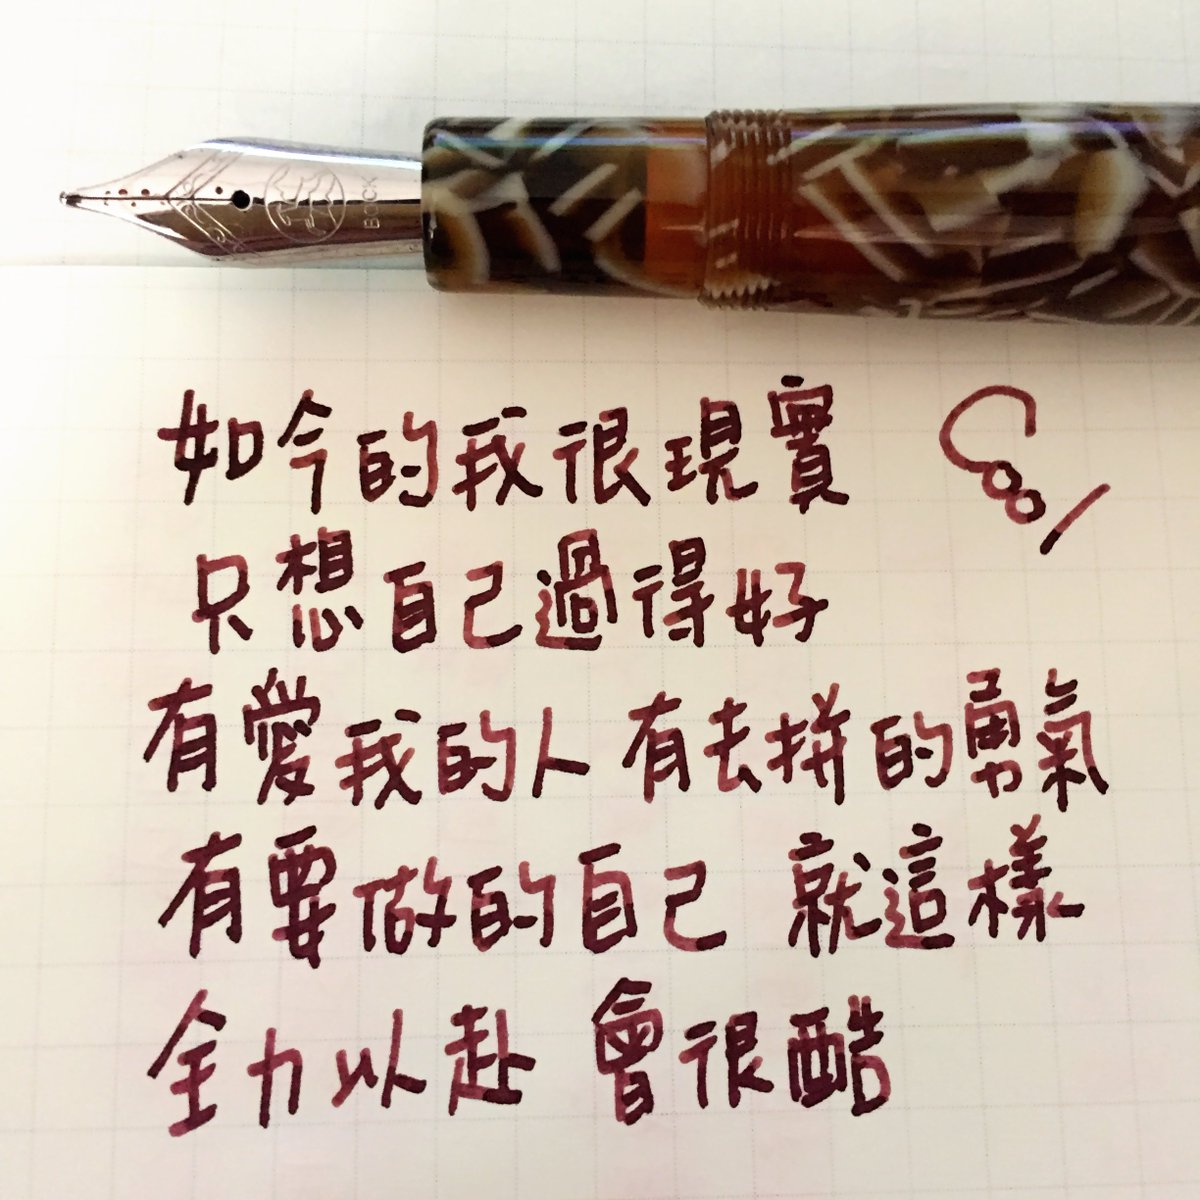 BOCK
如今的我很現實
只想自己過得好
有愛我的人 有去拼的勇氣
有要做的自己 就這樣
全力以赴 會很酷